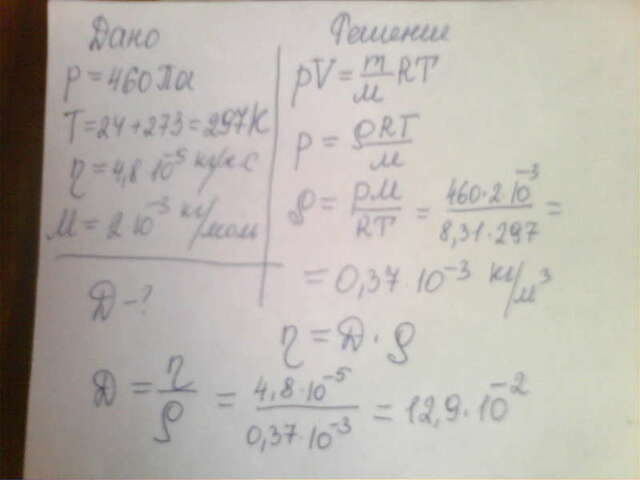 Дано
p = 460 Па
T = 24 + 273 = 297 К
η = 4,8 10⁻⁵ кг/м с
M = 2 10⁻³ кг/моль
D - ?
Решение
pV = m/M RT
p = ρRT/M
ρ = pM/RT = 460·2 10⁻³/8,31·297 =
= 0,37·10⁻³ кг/м³
η = D · ρ
D = η/ρ = 4,8·10⁻⁵/0,37·10⁻³ = 12,9·10⁻²